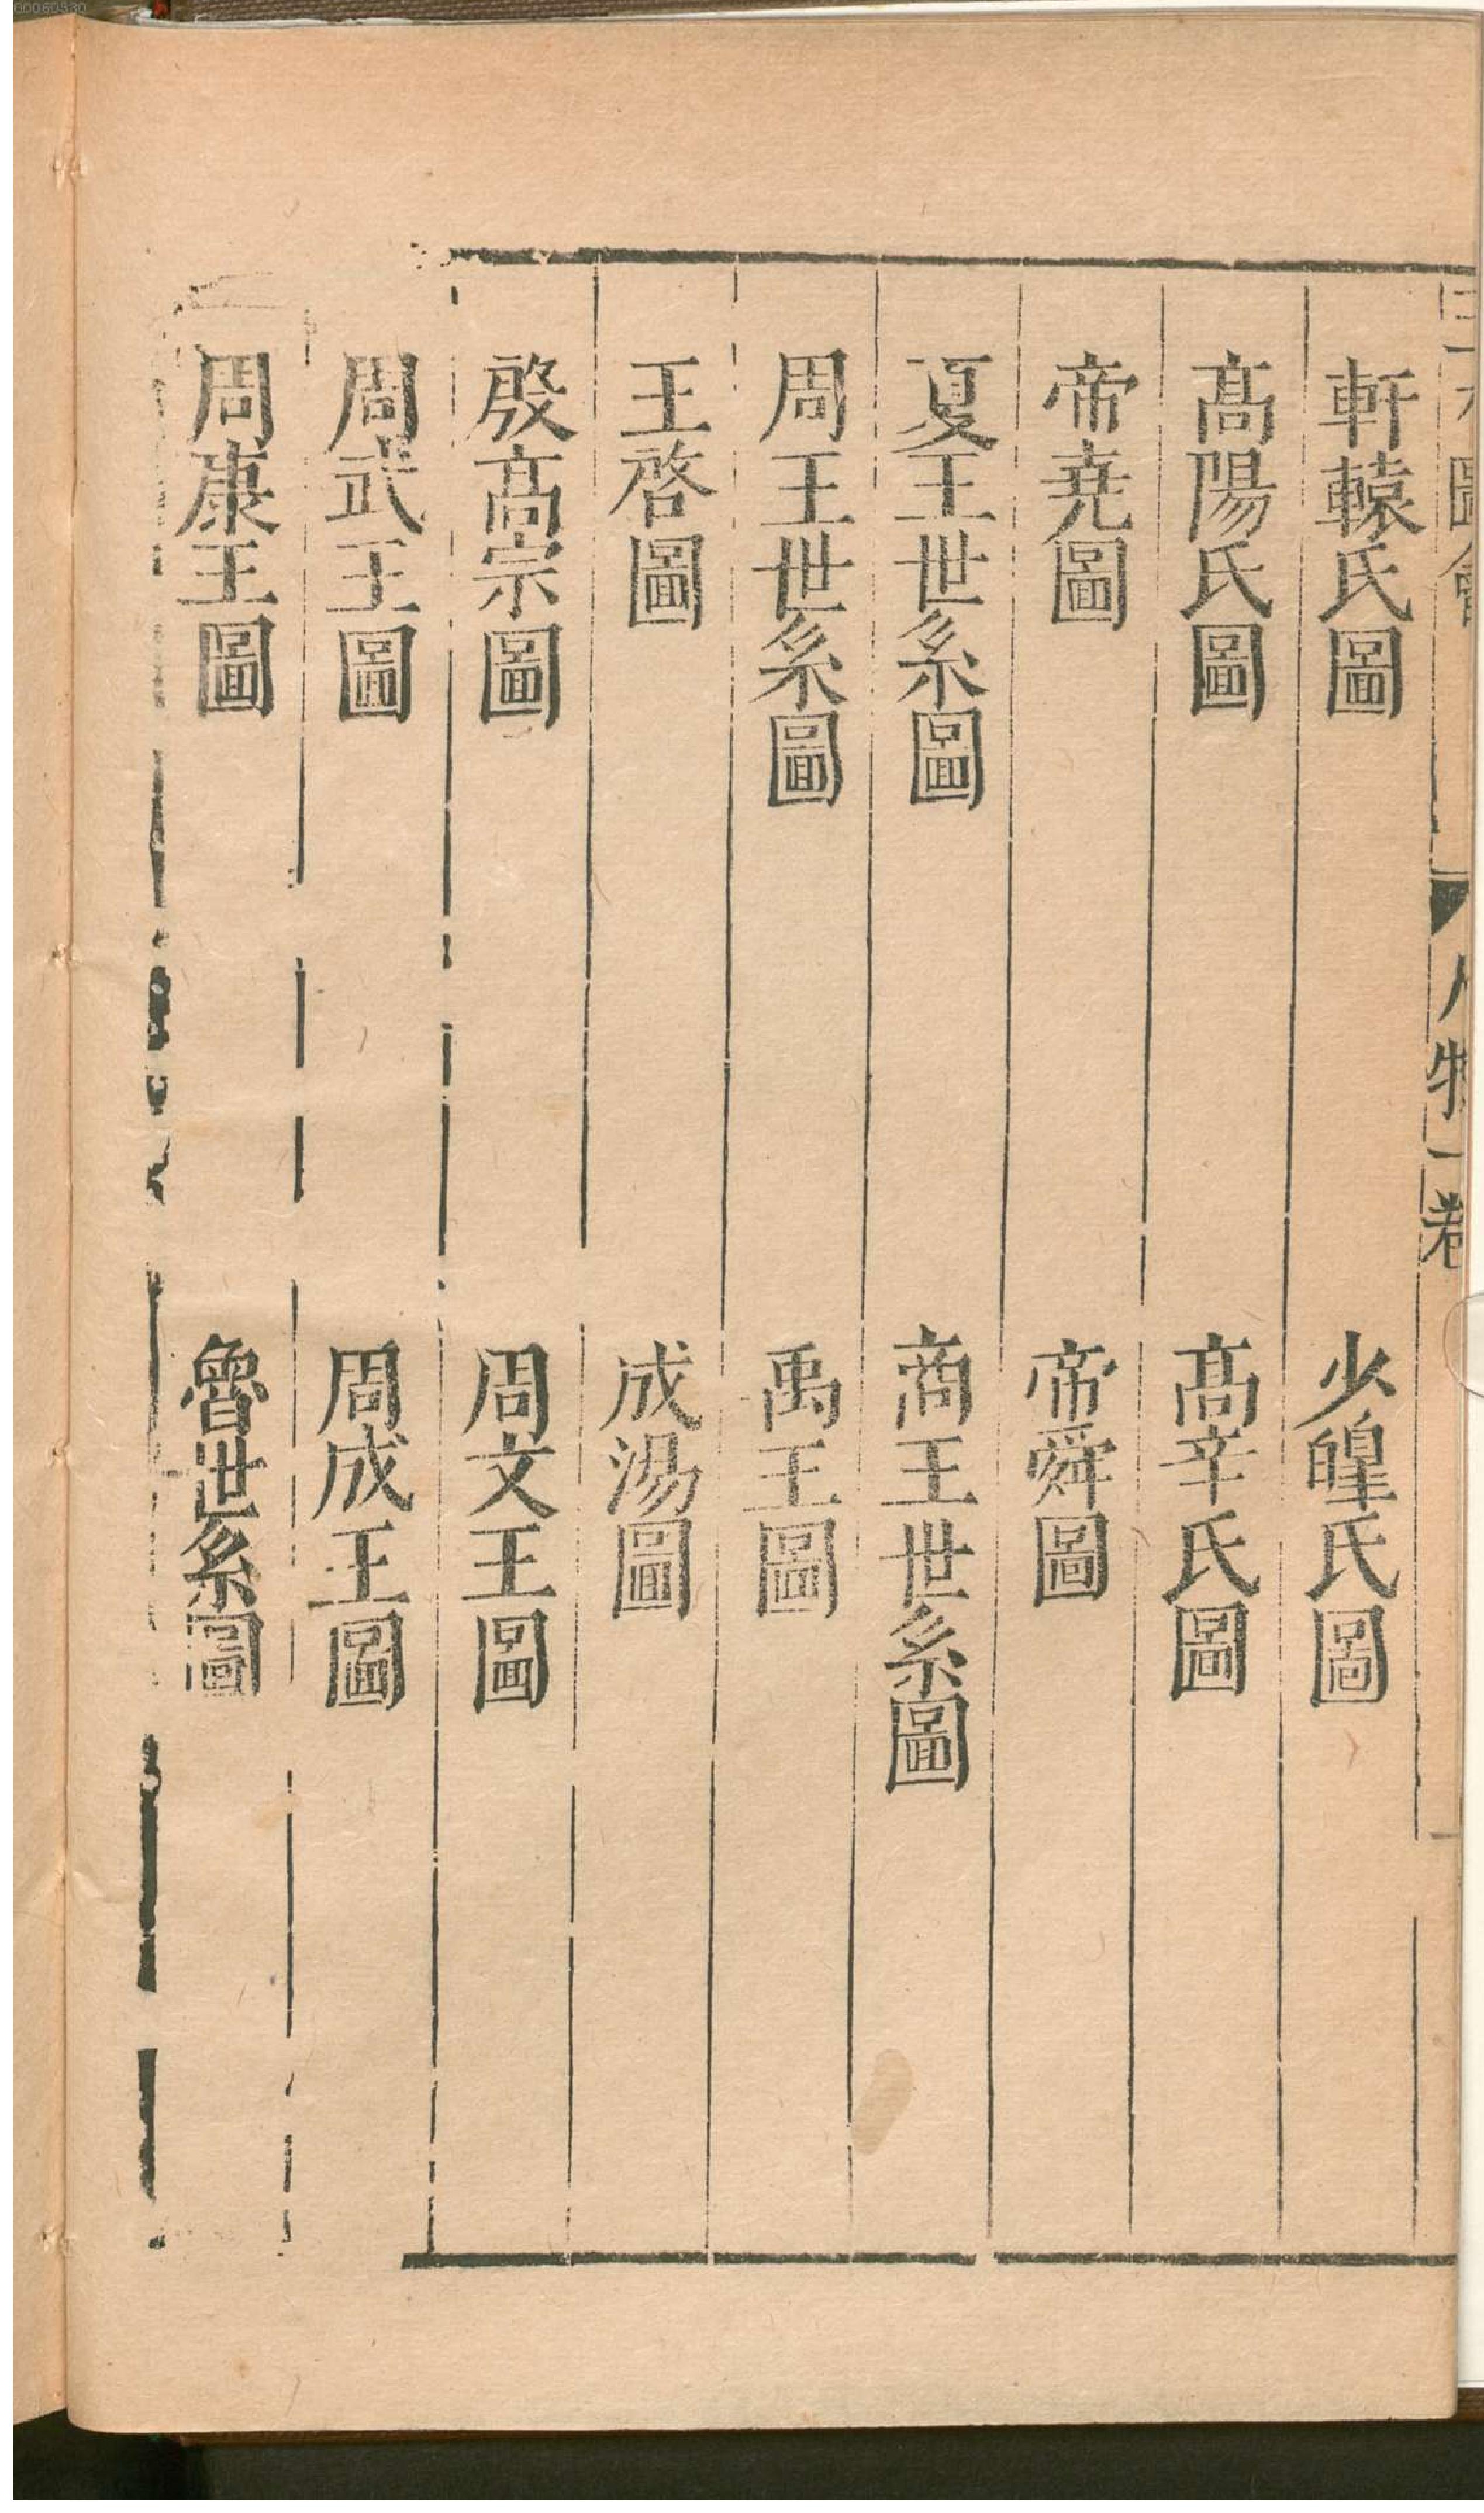 00060930
圖會 人物一卷
軒轅氏圖 少皡氏圖
髙陽氏圖 髙辛氏圖
帝尭圖 帝舜圖
夏王世系圖 商王世系圖
周王世系圖 禹王圖
王啓圖 成湯圖
殷髙宗圖 周文王圖
周武王圖 周成王圖
周康王圖 魯世系圖